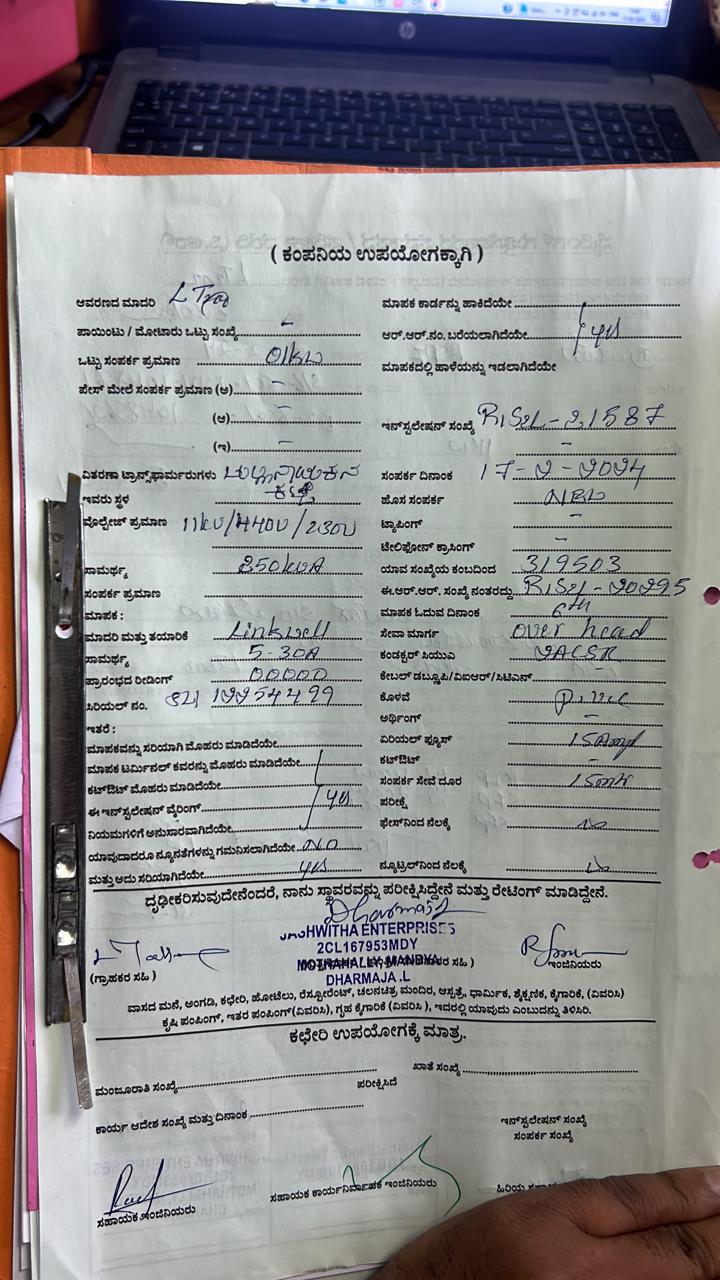 ( ಕಂಪನಿಯ ಉಪಯೋಗಕ್ಕಾಗಿ )
ಆವರಣದ ಮಾದರಿ
ಪಾಯಿಂಟು / ಮೋಟಾರು ಒಟ್ಟು ಸಂಖ್ಯೆ -
ಒಟ್ಟು ಸಂಪರ್ಕ ಪ್ರಮಾಣ 01kw
ಪೇಸ್ ಮೇಲೆ ಸಂಪರ್ಕ ಪ್ರಮಾಣ (ಅ) -
(ಆ) -
(ಇ) -
ವಿತರಣಾ ಟ್ರಾನ್ಸ್‌ಫಾರ್ಮರುಗಳು
ಇವರು ಸ್ಥಳ
ವೊಲ್ಟೇಜ್ ಪ್ರಮಾಣ 11kv/440v/230v
ಸಾಮರ್ಥ್ಯ 250kvA
ಸಂಪರ್ಕ ಪ್ರಮಾಣ
ಮಾಪಕ :
ಮಾದರಿ ಮತ್ತು ತಯಾರಿಕೆ Linkwell
ಸಾಮರ್ಥ್ಯ 5-30A
ಪ್ರಾರಂಭದ ರೀಡಿಂಗ್ 00000
ಸಿರಿಯಲ್ ನಂ.
ಇತರೆ :
ಮಾಪಕವನ್ನು ಸರಿಯಾಗಿ ಮೊಹರು ಮಾಡಿದೆಯೇ
ಮಾಪಕ ಟರ್ಮಿನಲ್ ಕವರನ್ನು ಮೊಹರು ಮಾಡಿದೆಯೇ
ಕಟ್‌ಔಟ್ ಮೊಹರು ಮಾಡಿದೆಯೇ
ಈ ಇನ್‌ಸ್ಟಲೇಷನ್ ವೈರಿಂಗ್ yes
ನಿಯಮಗಳಿಗೆ ಅನುಸಾರವಾಗಿದೆಯೇ
ಯಾವುದಾದರೂ ನ್ಯೂನತೆಗಳನ್ನು ಗಮನಿಸಲಾಗಿದೆಯೇ NO
ಮತ್ತು ಅದು ಸರಿಯಾಗಿದೆಯೇ yes
ಮಾಪಕ ಕಾರ್ಡನ್ನು ಹಾಕಿದೆಯೇ
ಆರ್.ಆರ್.ನಂ. ಬರೆಯಲಾಗಿದೆಯೇ yes
ಮಾಪಕದಲ್ಲಿ ಹಾಳೆಯನ್ನು ಇಡಲಾಗಿದೆಯೇ
ಇನ್‌ಸ್ಟಲೇಷನ್ ಸಂಖ್ಯೆ
-
ಸಂಪರ್ಕ ದಿನಾಂಕ 17-2-2024
ಹೊಸ ಸಂಪರ್ಕ NEW
ಟ್ಯಾಪಿಂಗ್ -
ಟೆಲಿಫೋನ್ ಕ್ರಾಸಿಂಗ್ -
ಯಾವ ಸಂಖ್ಯೆಯ ಕಂಬದಿಂದ 319503
ಈ.ಆರ್.ಆರ್. ಸಂಖ್ಯೆ ನಂತರದ್ದು
ಮಾಪಕ ಓದುವ ದಿನಾಂಕ 6th
ಸೇವಾ ಮಾರ್ಗ over head
ಕಂಡಕ್ಟರ್ ಸಿಯುವಿ
ಕೇಬಲ್ ಡಬ್ಲ್ಯೂಪಿ/ವಿಐಆರ್/ಸಿಟಿಎಸ್ -
ಕೊಳವೆ P.V.C
ಅರ್ಥಿಂಗ್ -
ಏರಿಯಲ್ ಫ್ಯೂಸ್ 15Amp
ಕಟ್‌ಔಟ್ -
ಸಂಪರ್ಕ ಸೇವೆ ದೂರ 15mtr
ಪರೀಕ್ಷೆ
ಫೇಸ್‌ನಿಂದ ನೆಲಕ್ಕೆ
ನ್ಯೂಟ್ರಲ್‌ನಿಂದ ನೆಲಕ್ಕೆ
ದೃಢೀಕರಿಸುವುದೇನೆಂದರೆ, ನಾನು ಸ್ಥಾವರವನ್ನು ಪರೀಕ್ಷಿಸಿದ್ದೇನೆ ಮತ್ತು ರೇಟಿಂಗ್ ಮಾಡಿದ್ದೇನೆ.
JASHWITHA ENTERPRISES
2CL167953MDY
MOTHAHALLY, MANDYA
DHARMAJA.L
(ಗ್ರಾಹಕರ ಸಹಿ )
ಇಂಜಿನಿಯರು
ವಾಸದ ಮನೆ, ಅಂಗಡಿ, ಕಛೇರಿ, ಹೋಟೆಲು, ರೆಸ್ಟೋರೆಂಟ್, ಚಲನಚಿತ್ರ ಮಂದಿರ, ಆಸ್ಪತ್ರೆ, ಧಾರ್ಮಿಕ, ಶೈಕ್ಷಣಿಕ, ಕೈಗಾರಿಕೆ, (ವಿವರಿಸಿ)
ಕೃಷಿ ಪಂಪಿಂಗ್, ಇತರ ಪಂಪಿಂಗ್(ವಿವರಿಸಿ), ಗೃಹ ಕೈಗಾರಿಕೆ (ವಿವರಿಸಿ ), ಇದರಲ್ಲಿ ಯಾವುದು ಎಂಬುದನ್ನು ತಿಳಿಸಿರಿ.
ಕಛೇರಿ ಉಪಯೋಗಕ್ಕೆ ಮಾತ್ರ.
ಮಂಜೂರಾತಿ ಸಂಖ್ಯೆ
ಪರೀಕ್ಷಿಸಿದೆ
ಖಾತೆ ಸಂಖ್ಯೆ
ಕಾರ್ಯ ಆದೇಶ ಸಂಖ್ಯೆ ಮತ್ತು ದಿನಾಂಕ
ಇನ್‌ಸ್ಟಲೇಷನ್ ಸಂಖ್ಯೆ
ಸಂಪರ್ಕ ಸಂಖ್ಯೆ
ಸಹಾಯಕ ಇಂಜಿನಿಯರು
ಸಹಾಯಕ ಕಾರ್ಯನಿರ್ವಾಹಕ ಇಂಜಿನಿಯರು
ಹಿರಿಯ